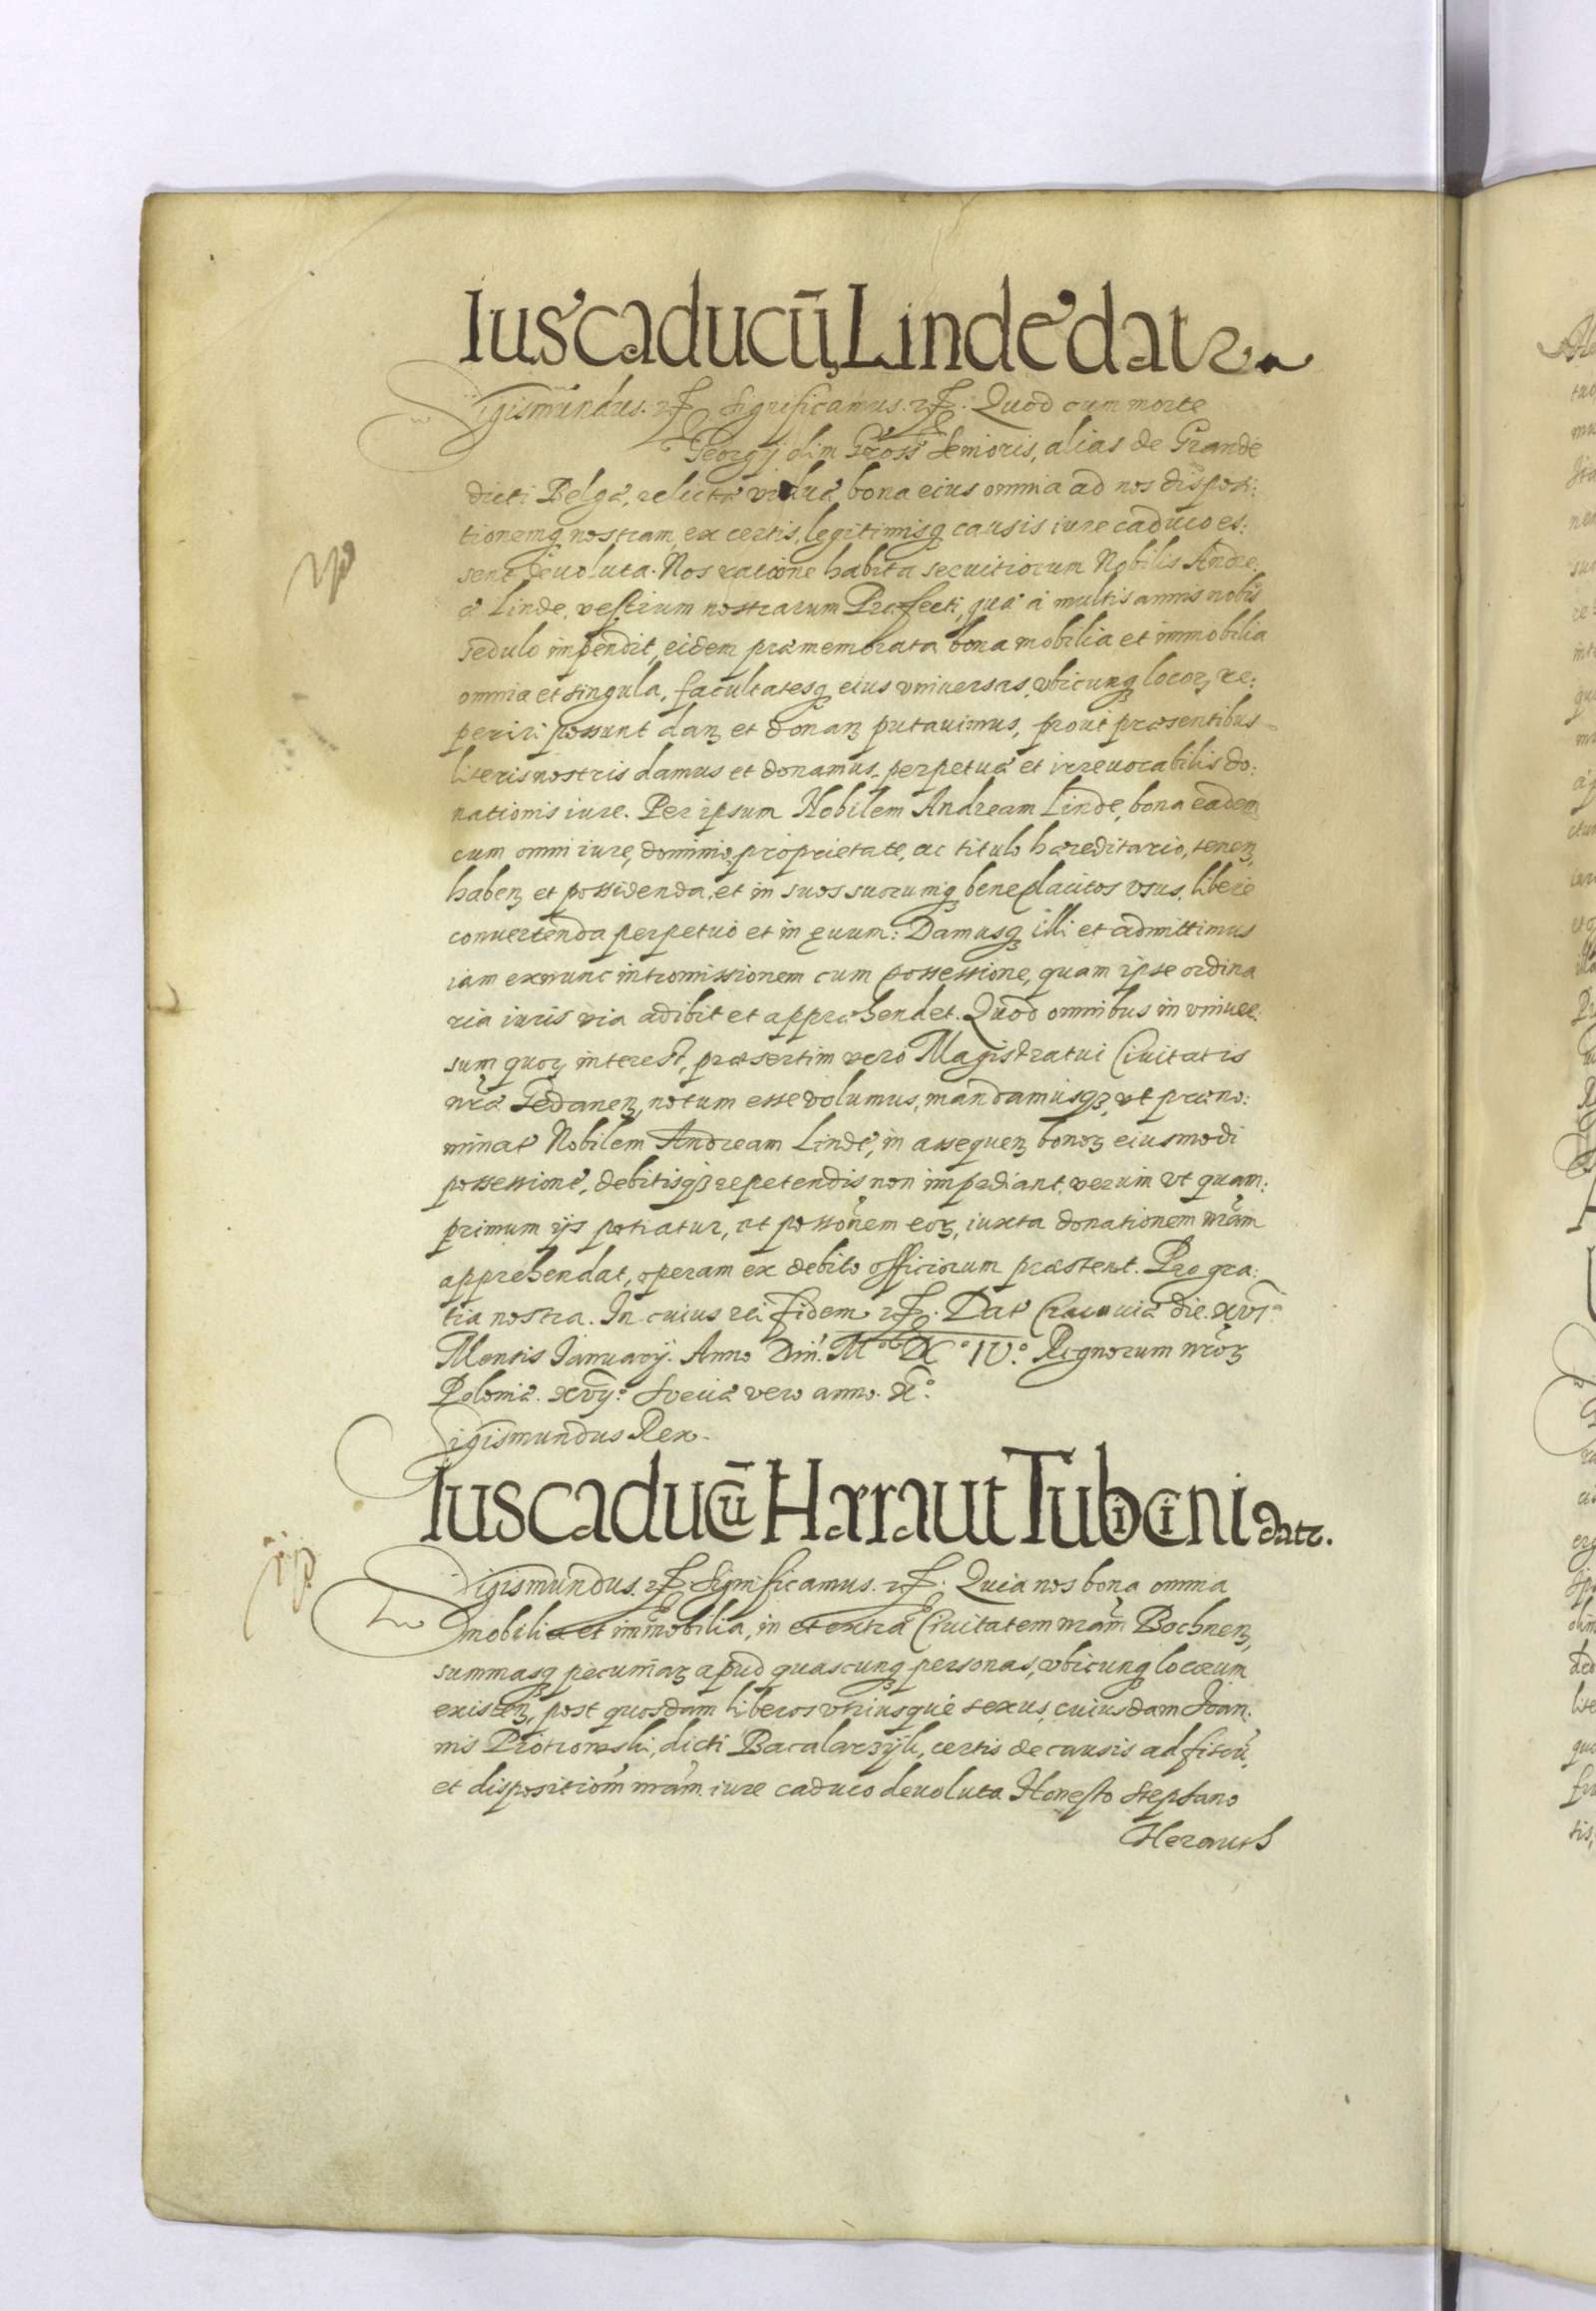 Ius caducū Linde datr
Sigismundus. etc. Significamus. etc. Quod cum morte
Georgij olim Gross Senioris, alias de Grande
dicti Belgæ, relictæ viduæ bona eius omnia ad nos disposi:
tionemq nostram, ex certis, legitimisq causis iure caduco es:
sent devoluta. Nos ratione habita servitiorum Nobilis Andre
æ Linde, vestium nostrarum Præfecti, quæ à multis annis nobis
sedulo impendit, eidem præmemorata bona mobilia et immobilia
omnia et singula, facultatesq eius vniuersas, vbicunq locorz re:
periri possunt danz et donanz putauimus, prout præsentibus
literis nostris damus et donamus, perpetuæ et irreuocabilis do:
nationis iure. Per ipsum Nobilem Andream Linde, bona eadem
cum omni iure, dominio, proprietate, ac titulo hæreditario, tenenz,
habenz et possidenda, et in suos suorumq beneplacitos vsus, libere
conuertenda perpetuò et in ęuum: Damusq illi et admittimus
iam exnunc intromissionem cum possessione, quam ipse ordina
ria iuris via adibit et appræhendet. Quod omnibus in vniuer:
sum quorz interest, præsertim vero Magistratui Ciuitatis
nræ Gedanenz, notum esse volumus, mandamusqz, vt præno:
minat Nobilem Andream Linde, in assequenz bonorz eiusmodi
possessione, debitisqz repetendis non impediant, verum vt quam:
primum ijs potiatur, et possonem eorz, iuxta donationem nram
apprehendat, operam ex debito officiorum præstent. Pro gra:
tia nostra. In cuius rei fidem etc. Dat Cracouiæ die. xvi.a
Mensis Ianuarij. Anno Dni. M.o DC.o IV.o Regnorum nrorz
Poloniæ. xvij.o Sueciæ vero anno. x.o
Sigismundus Rex.
Ius caducū Haraut Tubicini datr.
Sigismundus. etc. Significamus. etc. Quia nos bona omnia
mobilia et immobilia, in et extra Ciuitatem nram Bochnenz,
summasq pecuniarz apud quascunq personas, vbicunq locorum
existenz, post quosdam liberos vtriusque sexus, cuiusdam Ioan:
nis Piotrowski, dicti Bacalarzÿk, certis de causis ad fiscū,
et dispositiom nram iure caduco deuoluta Honesto Stephano
Herauth